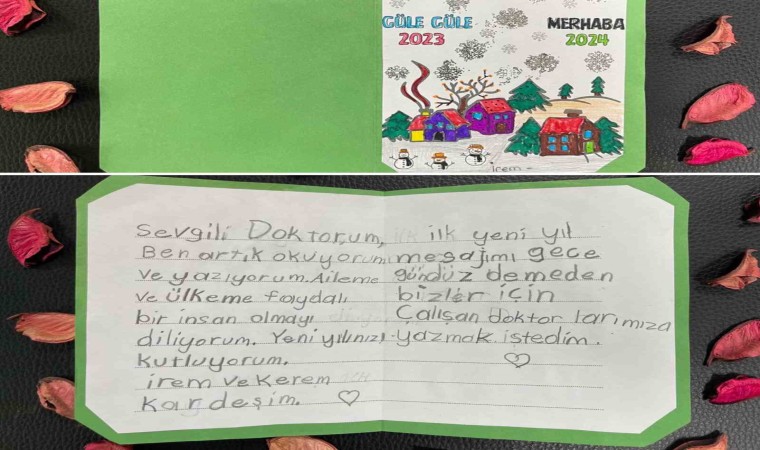 GÜLE GÜLE
2023
MERHABA
2024
irem
Sevgili Doktorum,
Ben artık okuyorum
ve yazıyorum. Aileme
ve ülkeme faydalı
bir insan olmayı
diliyorum. Yeni yılınızı
kutluyorum.
irem ve Kerem
Kardeşim.
ilk yeni yıl
mesajımı gece
gündüz demeden
bizler için
Çalışan doktorlarımıza
yazmak istedim.